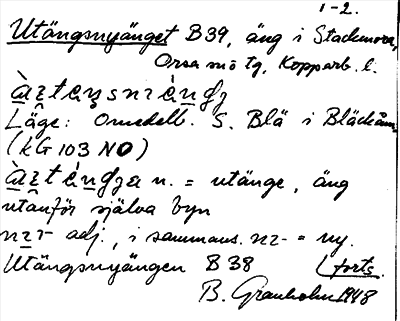 1-2.
Utängsnyänget B39, äng i Stackmora,
Orsa sn o tg, Kopparb. l.
Läge: Omedelb. S. Blä i Bläckån,
(kG 103 NO)
n. = utänge, äng
utanför själva byn
adj., i sammans. = ny.
Utängsnyängen B 38 (forts.
B. Granholm 1948